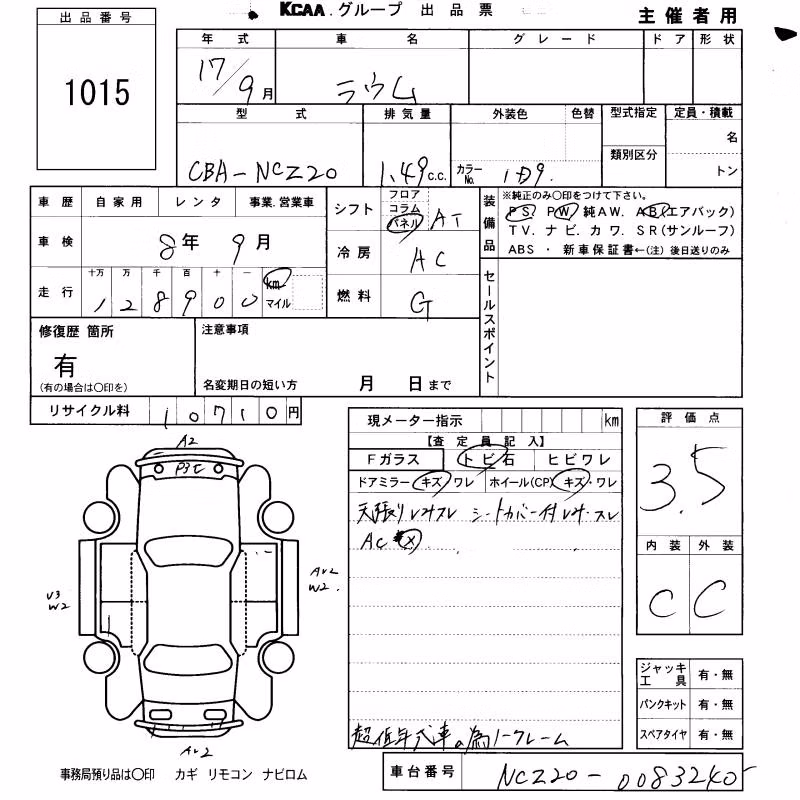 KCAA.グループ 出品票
主催者用
出品番号
1015
年式 車名 グレード ドア 形状
17/9月 ラウム
型式 排気量 外装色 色替 型式指定 定員・積載
類別区分 名
CBA-NCZ20 1.49c.c. カラーNo. 1D9. トン
車歴 自家用 レンタ 事業.営業車
車検 8年 9月
走行 十万 万 千 百 十 一 km マイル
128900
シフト フロア コラム パネル AT
冷房 AC
燃料 G
装備品
※純正のみ○印をつけて下さい。
PS. PW. 純AW. AB(エアバック)
TV. ナビ. カワ. SR(サンルーフ)
ABS ・ 新車保証書←(注) 後日送りのみ
セールスポイント
修復歴 箇所
有
(有の場合は○印を)
注意事項
名変期日の短い方 月 日まで
リサイクル料 10710円
現メーター指示 km
【査定員記入】
Fガラス トビ石 ヒビワレ
ドアミラー キズ・ワレ ホイール(CP) キズ・ワレ
天張りヨゴレスレ シートカバー付ヨゴレ・スレ
AC ×.
超低年式車の為ノークレーム
評価点
3.5
内装 外装
C C
ジャッキ工具 有・無
パンクキット 有・無
スペアタイヤ 有・無
A2
P3
U3
W2
AU2
W2.
AU2
事務局預り品は○印 カギ リモコン ナビロム
車台番号 NCZ20-0083240